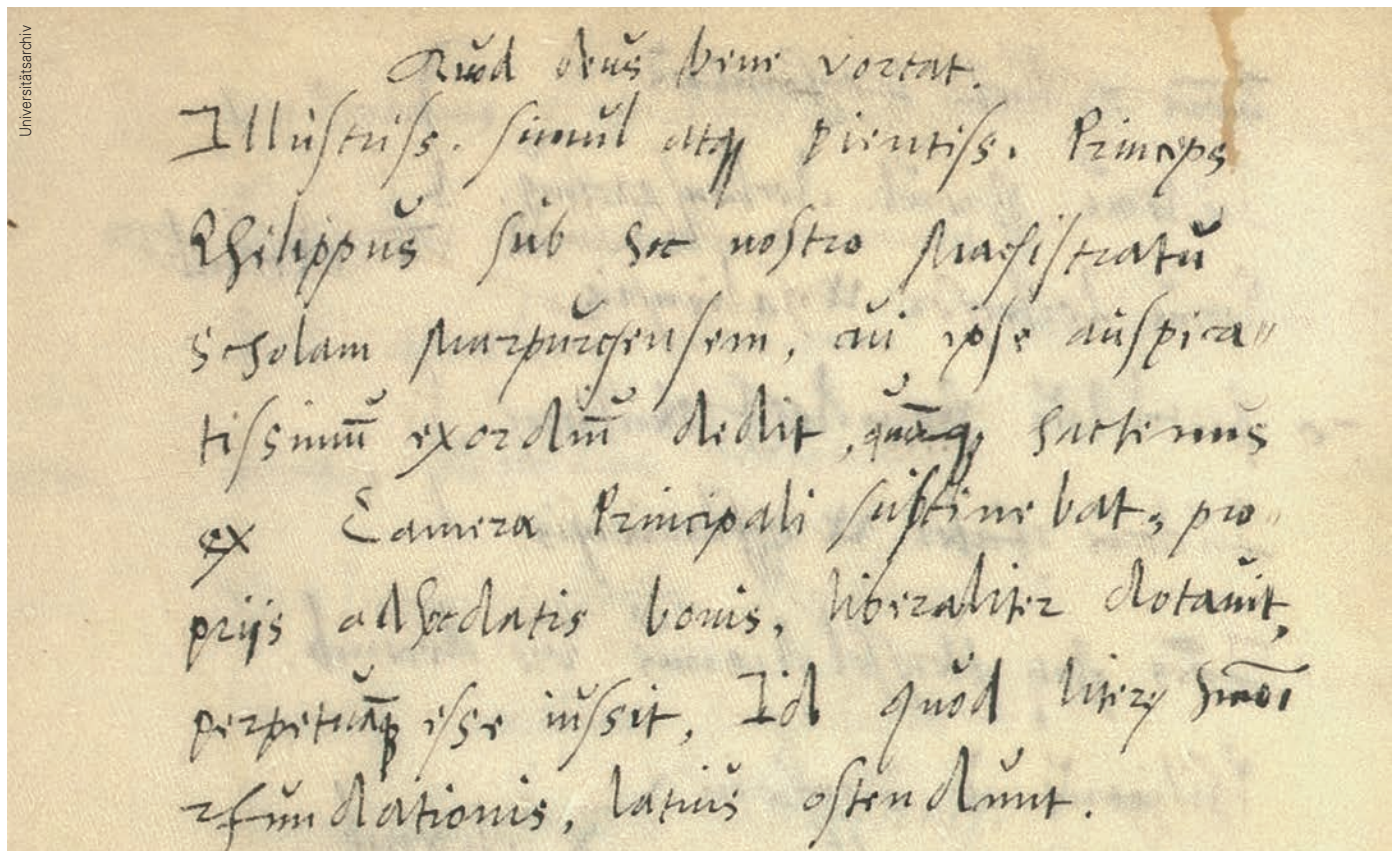 Universitätsarchiv
Quod deus bene vortat.
Illustriss. simul atq₃ pientiss. Princeps
Philippus sub hoc nostro Magistratu
Scholam Marpurgensem, cui ipse auspica„
tissimū exordiū dedit, quāq₃ hactenus
ex Camera Principali sustinebat, pro„
prijs ad hoc datis bonis, liberaliter dotauit,
perpetuāq₃ esse iussit, Id quod literę
fundationis, latius ostendunt.